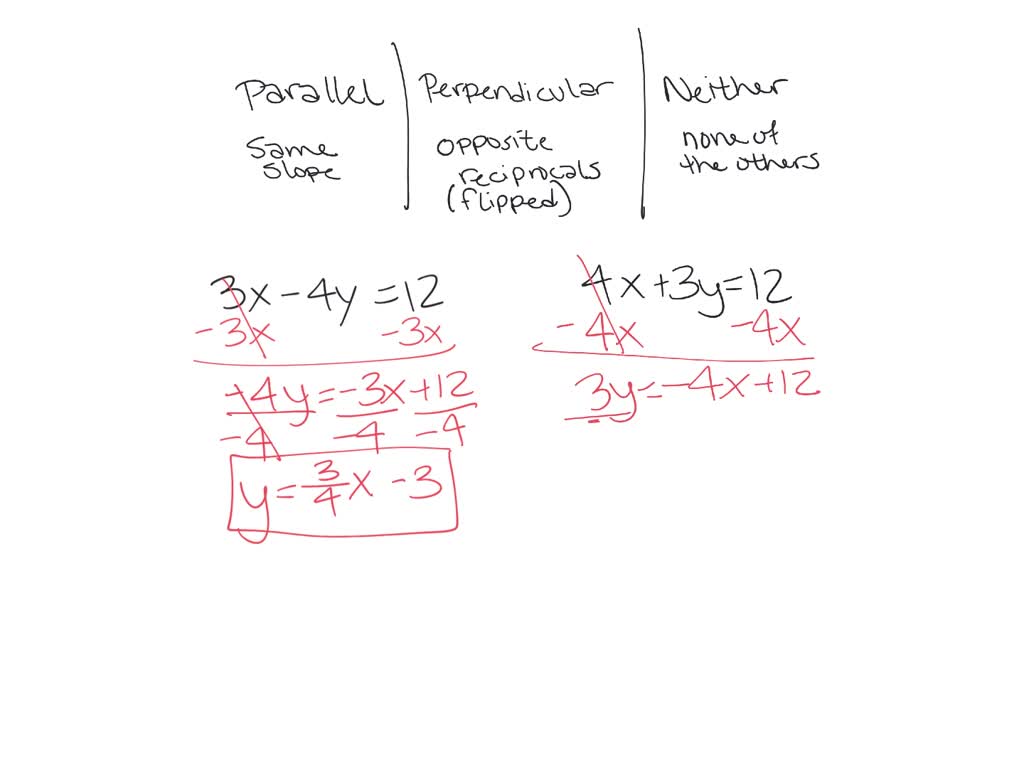 Parallel
same
slope
Perpendicular
opposite
reciprocals
(flipped)
Neither
none of
the others
3x - 4y = 12
-3x -3x
-4y = -3x + 12
-4 -4 -4
y = 3/4 x - 3
4x + 3y = 12
-4x -4x
3y = -4x + 12